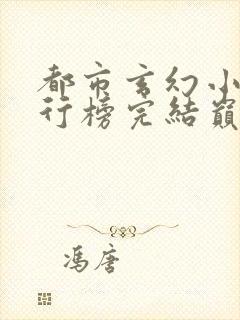 都市玄幻小
行榜完结巅
冯唐